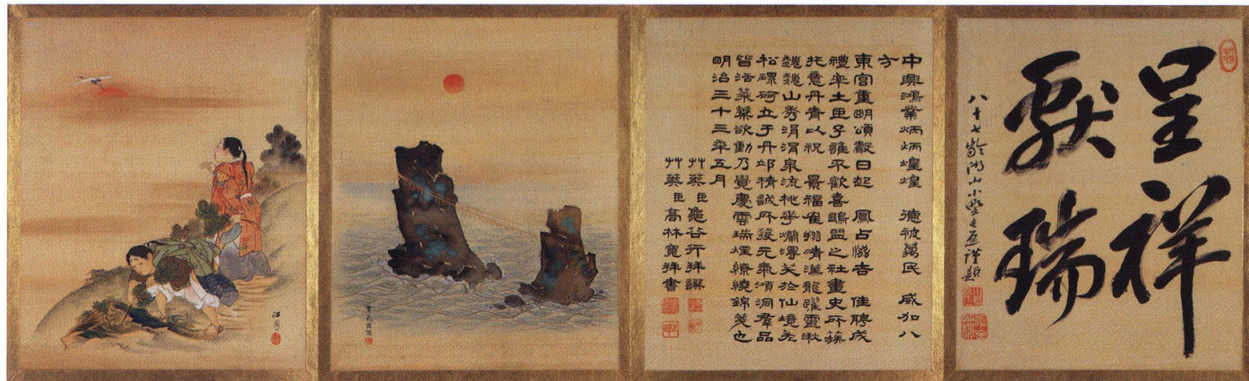 呈祥
獻瑞
八十七齡湖山小野長愿謹題
中興鴻業炳炳煌煌 德被萬民 威加八
方
東宮重明頌獻日起 鳳占 吉 佳聘成
禮率土臣子誰不歡喜鷗盟之社畫史所簇
托意丹青以祝 景福隺翔晴漢龍躍靈湫
山秀涓涓泉流桃華爛漫 於仙境老
松磥砢立于丹邱精誠所發元氣澒洞羣品
皆活葉葉欲動乃覺慶雲瑞煙繚繞錦箋也
明治三十三年五月
艸莽臣龜谷行拜譔
艸莽臣髙林寬拜書